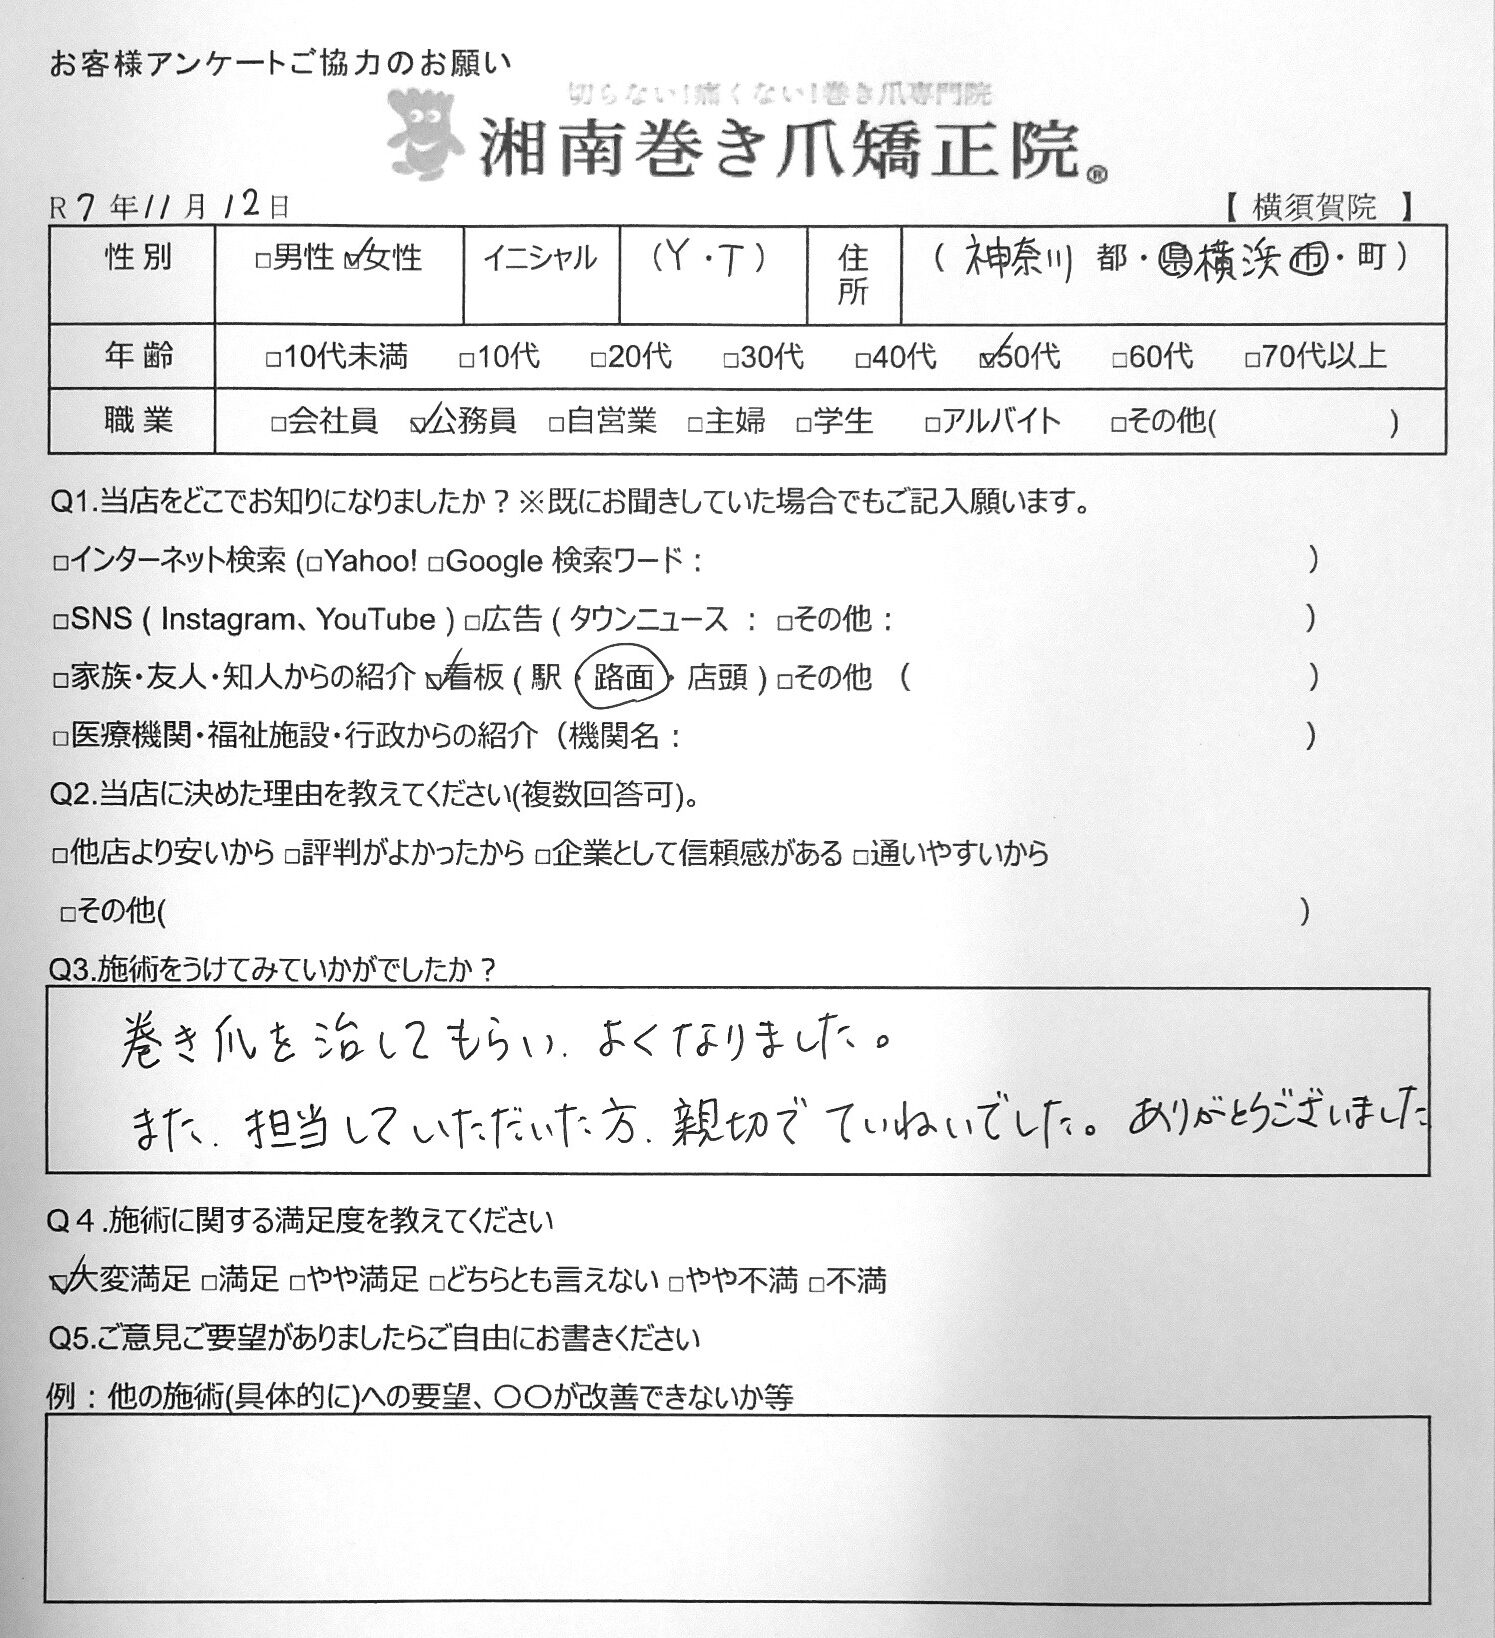 お客様アンケートご協力のお願い
切らない!痛くない!巻き爪専門院
湘南巻き爪矯正院®
R 7 年 11 月 12 日 【 横須賀院 】
性別 □男性 ☑女性 イニシャル (Y・T) 住所 ( 神奈川 都・県 横浜 市・町 )
年齢 □10代未満 □10代 □20代 □30代 □40代 ☑50代 □60代 □70代以上
職業 □会社員 ☑公務員 □自営業 □主婦 □学生 □アルバイト □その他( )
Q1.当店をどこでお知りになりましたか？※既にお聞きしていた場合でもご記入願います。
□インターネット検索 (□Yahoo! □Google 検索ワード： )
□SNS ( Instagram、YouTube ) □広告 ( タウンニュース ： □その他： )
□家族・友人・知人からの紹介 ☑看板 ( 駅・路面・店頭 ) □その他 ( )
□医療機関・福祉施設・行政からの紹介（機関名： )
Q2.当店に決めた理由を教えてください(複数回答可)。
□他店より安いから □評判がよかったから □企業として信頼感がある □通いやすいから
□その他( )
Q3.施術をうけてみていかがでしたか？
巻き爪を治してもらい、よくなりました。
また、担当していただいた方、親切でていねいでした。ありがとうございました
Q４.施術に関する満足度を教えてください
☑大変満足 □満足 □やや満足 □どちらとも言えない □やや不満 □不満
Q5.ご意見ご要望がありましたらご自由にお書きください
例：他の施術(具体的に)への要望、〇〇が改善できないか等